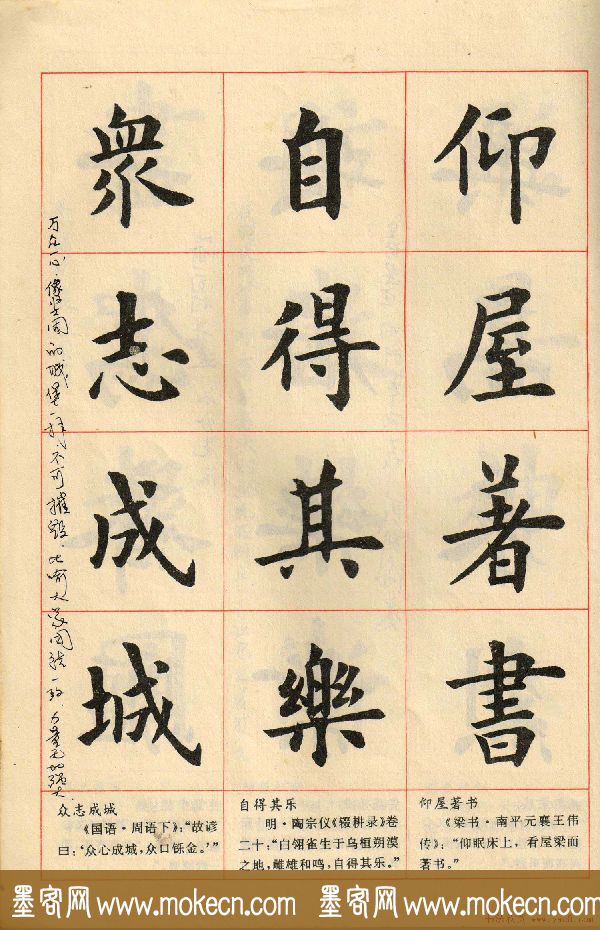 仰屋著书
自得其樂
眾志成城
万众一心，像坚固的城堡一样不可摧毁，比喻大家团结一致，力量无比强大。
仰屋著书
《梁书·南平元襄王伟
传》：“仰眠床上，看屋梁而
著书。”
自得其乐
明·陶宗仪《辍耕录》卷
二十：“白翎雀生于乌桓朔漠
之地，雌雄和鸣，自得其乐。”
众志成城
《国语·周语下》：“故谚
曰：‘众心成城，众口铄金。’”
墨客网 www.mokecn.com 墨客网 www.mokecn.com